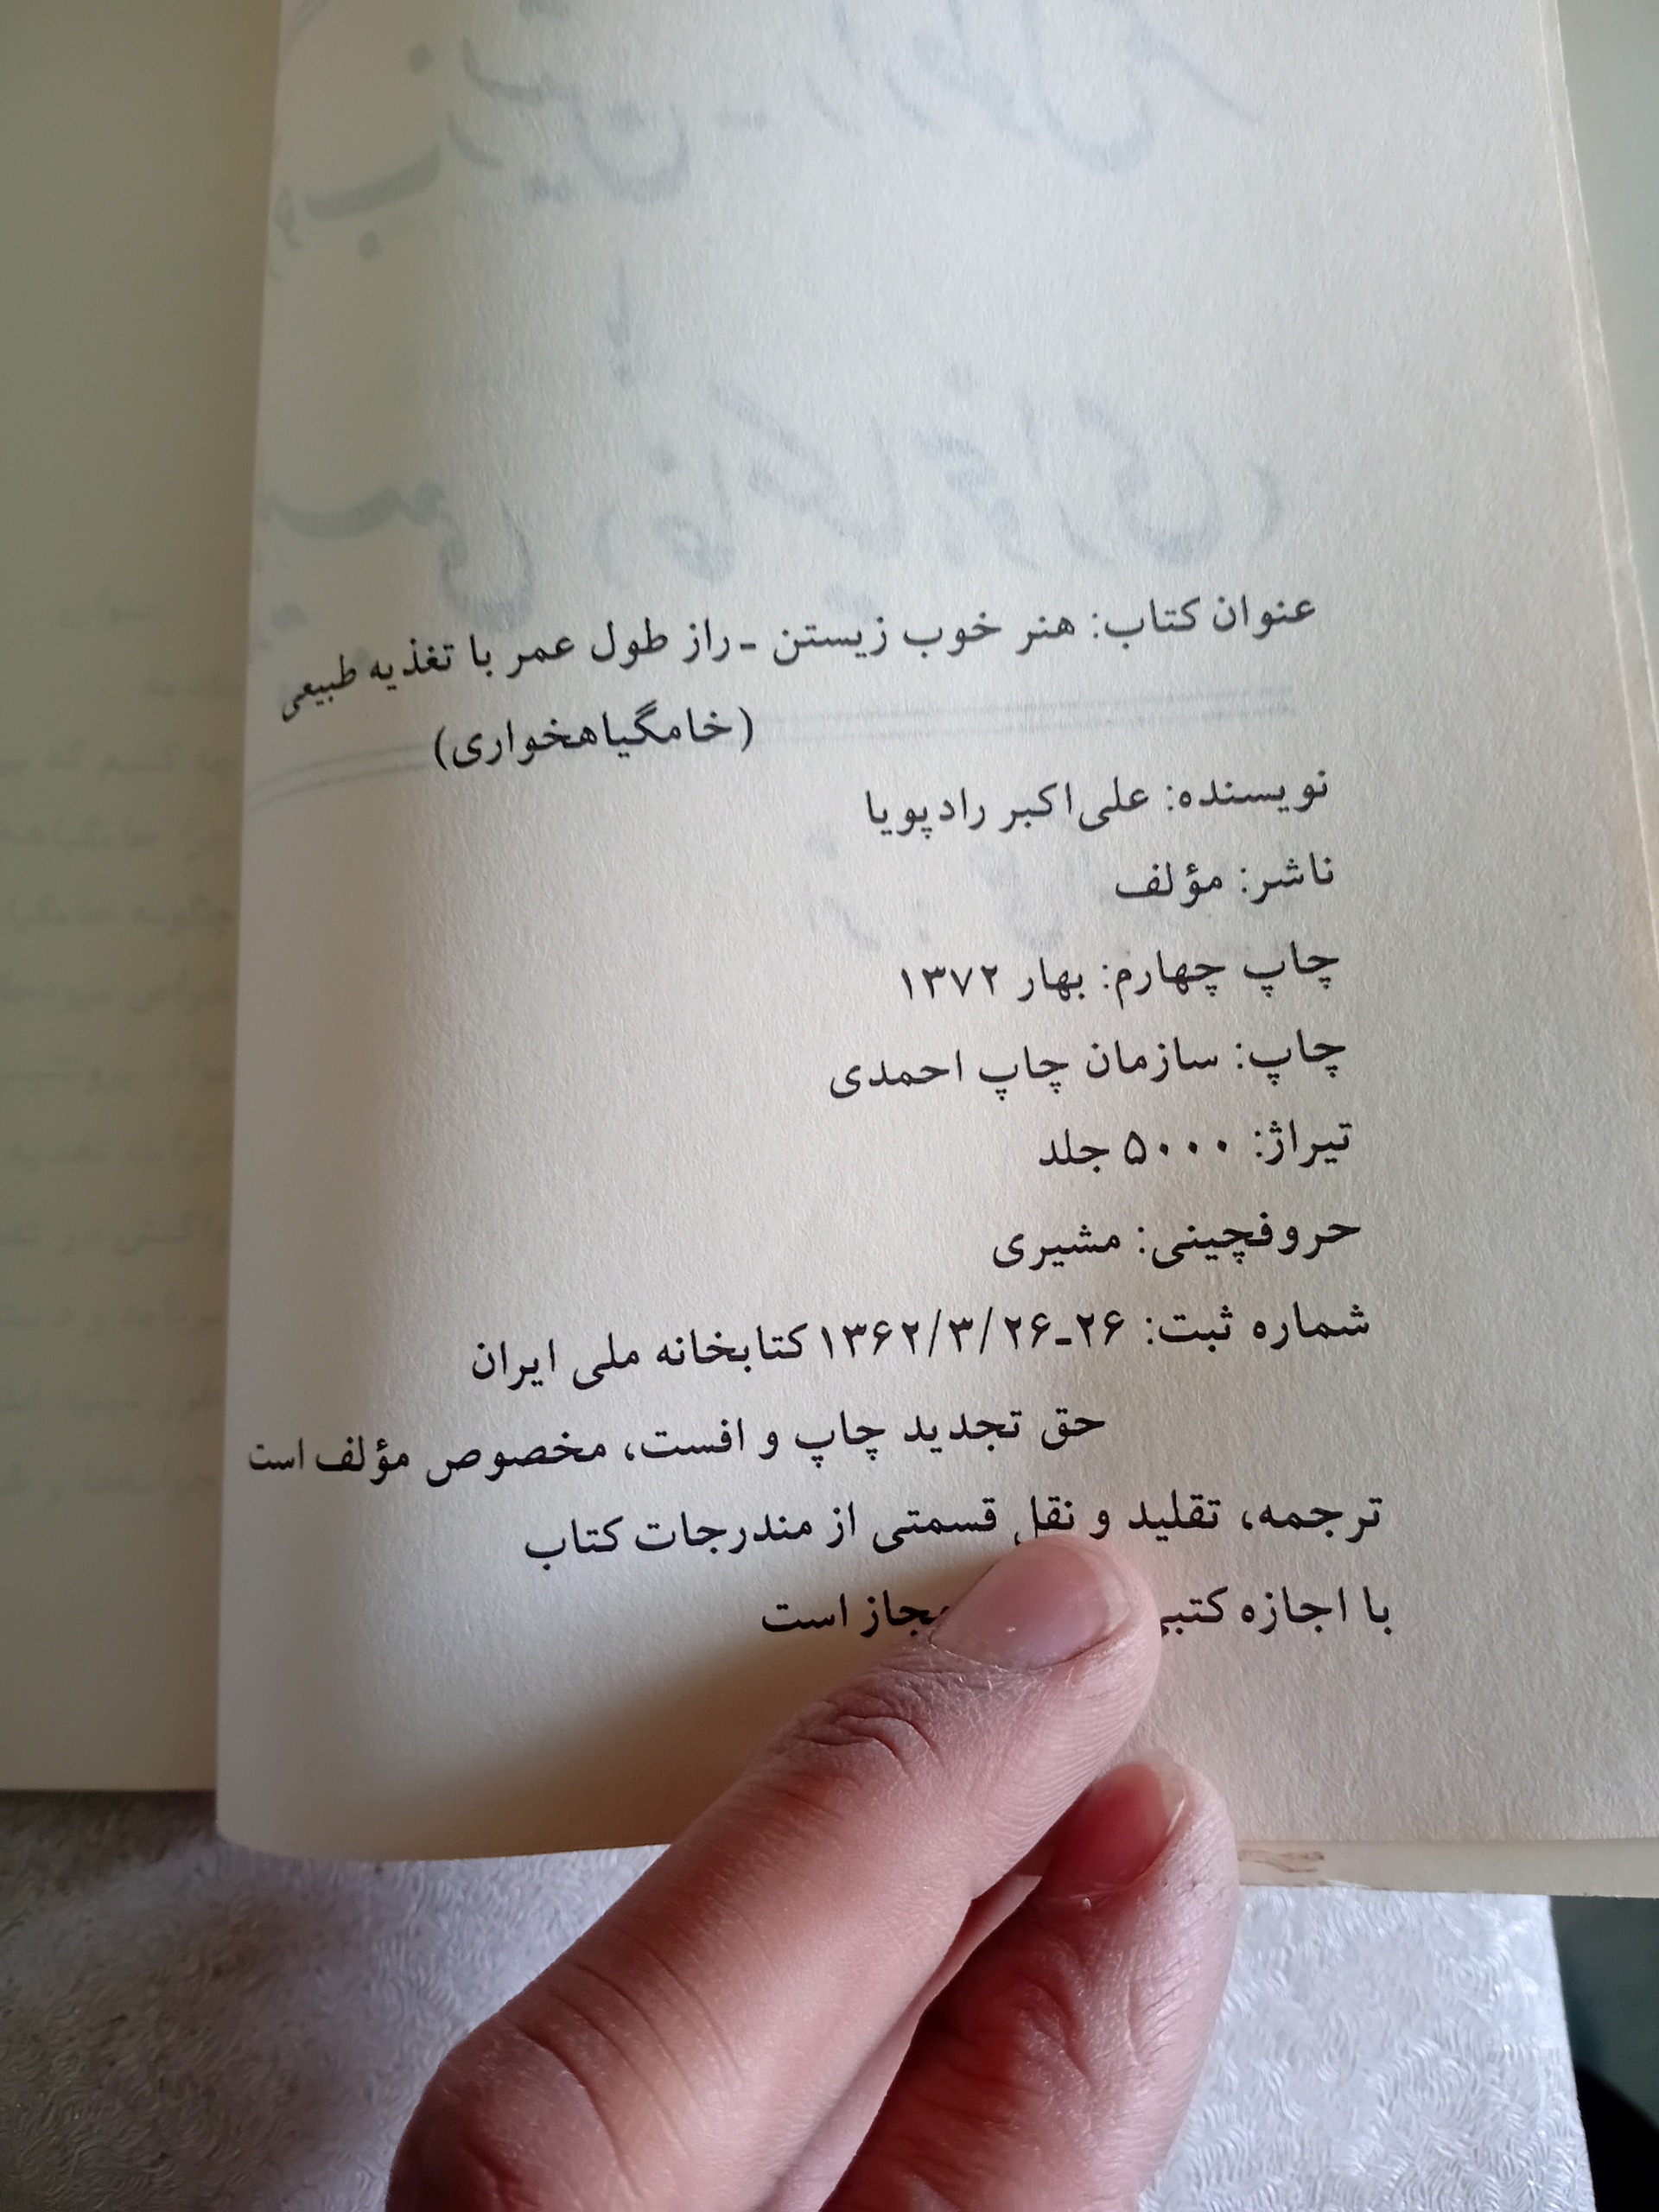 عنوان کتاب: هنر خوب زیستن - راز طول عمر با تغذیه طبیعی
(خامگیاهخواری)
نویسنده: علی‌اکبر رادپویا
ناشر: مؤلف
چاپ چهارم: بهار ۱۳۷۲
چاپ: سازمان چاپ احمدی
تیراژ: ۵۰۰۰ جلد
حروفچینی: مشیری
شماره ثبت: ۲۶-۱۳۶۲/۳/۲۶ کتابخانه ملی ایران
حق تجدید چاپ و افست، مخصوص مؤلف است
ترجمه، تقلید و نقل قسمتی از مندرجات کتاب
با اجازه مجاز است